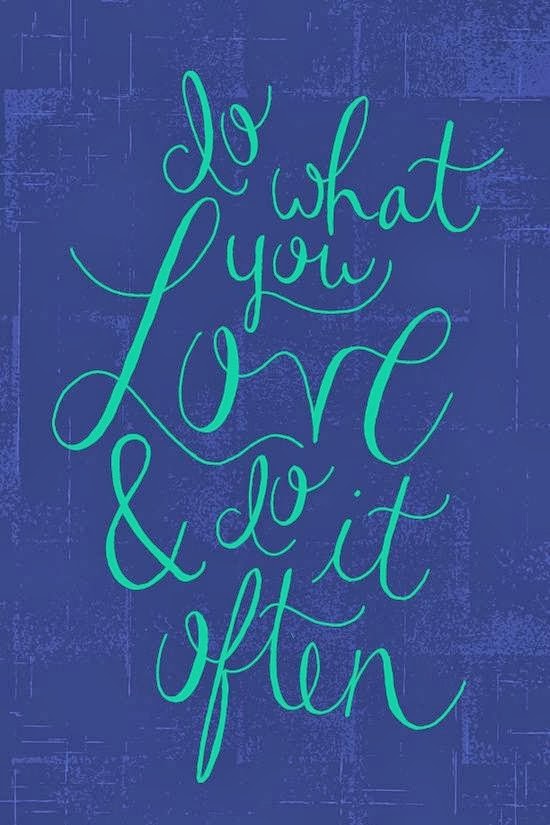 do
what
you
Love
& do it
often